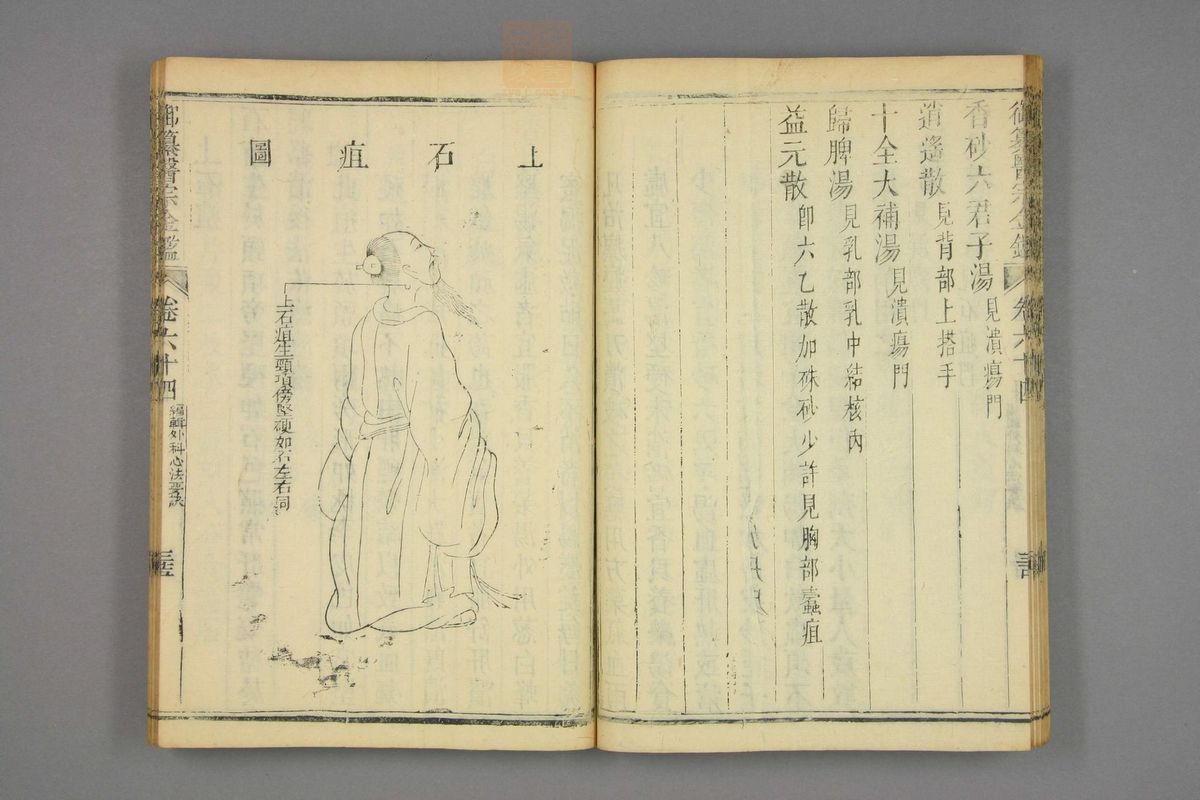 御纂醫宗金鑑 卷六十四
香砂六君子湯 見潰瘍門
逍遙散 見背部上搭手
十全大補湯 見潰瘍門
歸脾湯 見乳部乳中結核內
益元散 卽六乙散加硃砂少許見胸部蠹疽
上石疽圖
上石疽生頸項傍堅硬如石左右同
御纂醫宗金鑑 卷六十四 編輯外科心法要訣